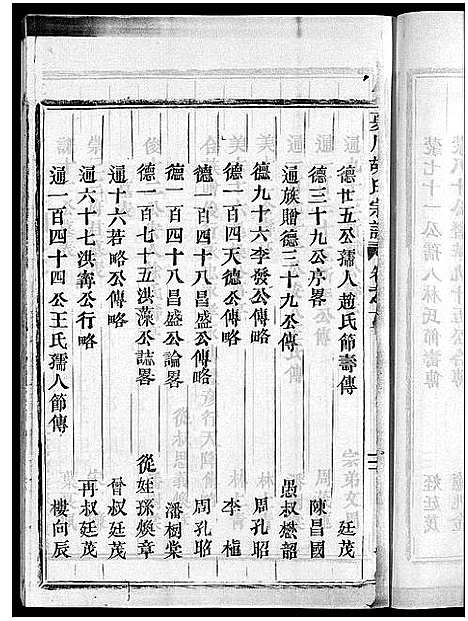 氏宗譜
德廿五公孺人趙氏節壽傳 廷茂
德三十九公序畧 陳昌國
通族贈德三十九公傳 愚叔懋韶
德九十六李發公傳略 周孔昭
德一百四天德公傳略 李楨
德一百四十八昌盛公傳略 周孔昭
德一百四十八昌盛公論畧 潘樹棠
德一百七十五洪藻公誌畧 從姪孫煥章
通十六若略公傳略 曾叔廷茂
通六十七洪濤公行略 再叔廷茂
通一百四十四公王氏孺人節傳 樓向辰